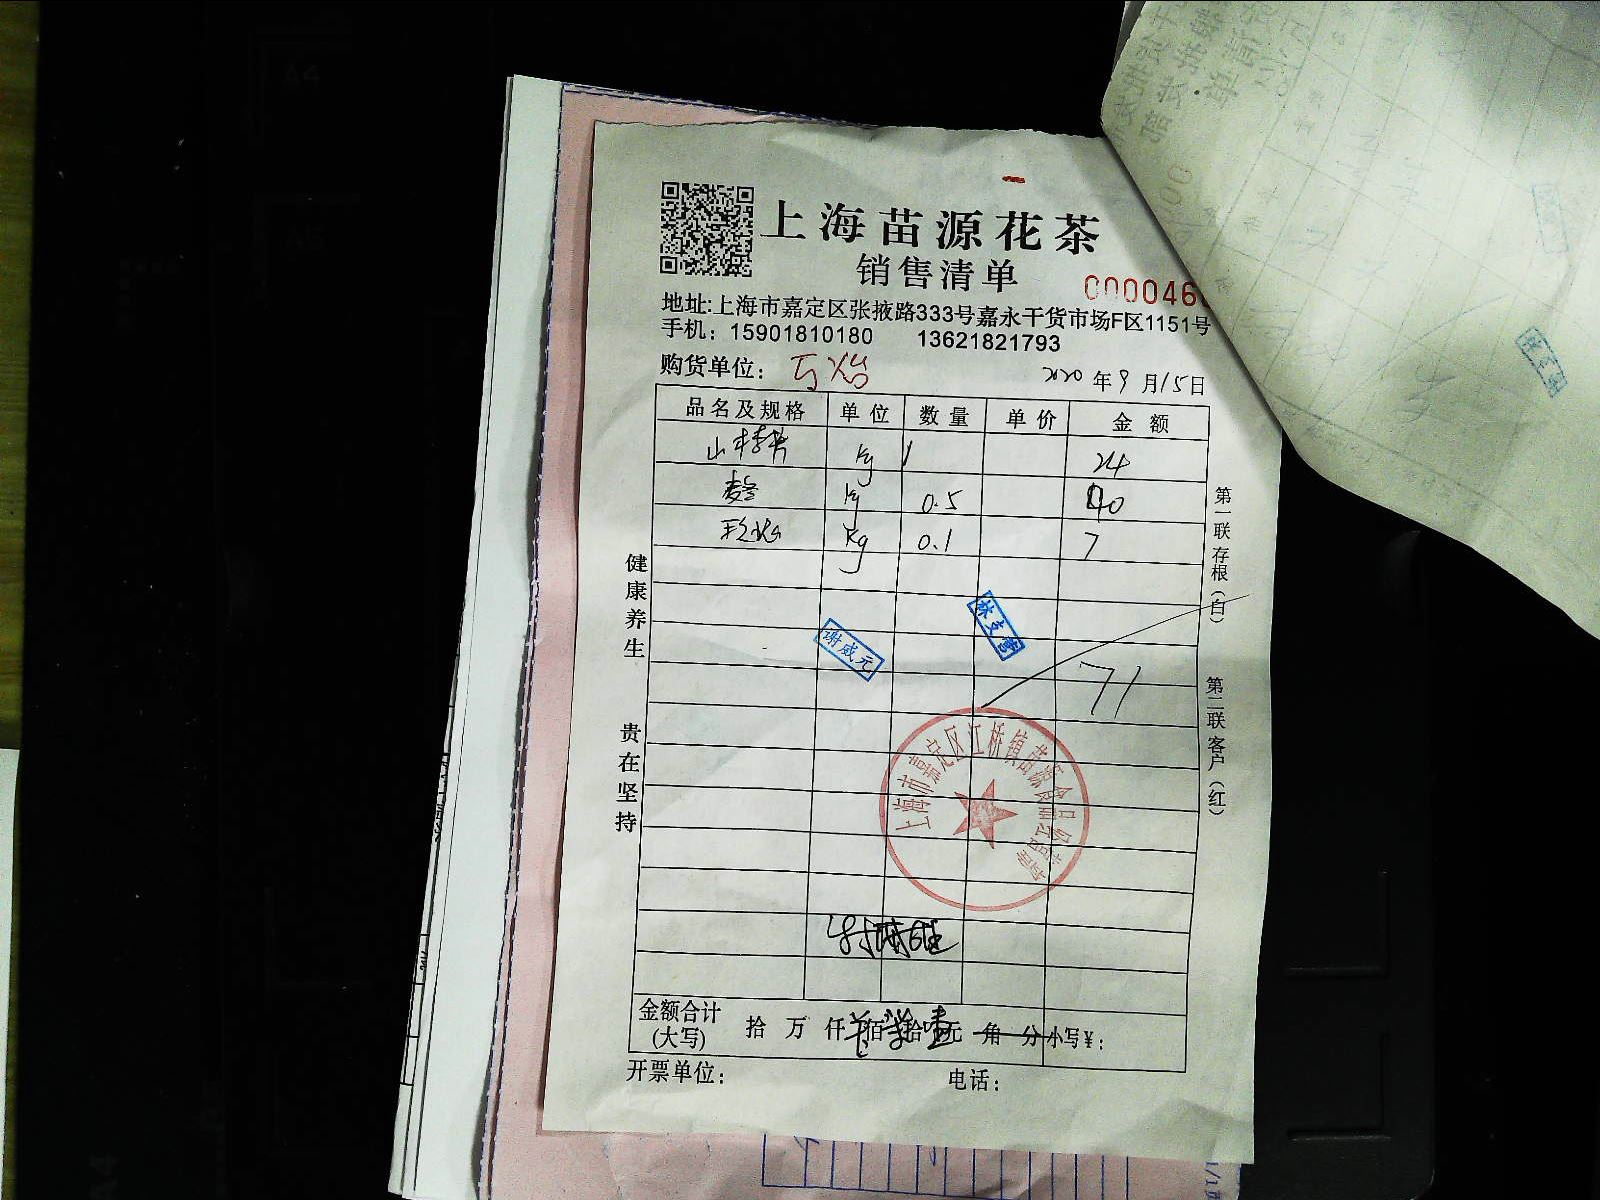 上海苗源花茶
销售清单
000046
地址:上海市嘉定区张掖路333号嘉永干货市场F区1151号
手机：15901810180 13621821793
购货单位：
2020年9月15日
品名及规格 单位 数量 单价 金额
山楂片 kg 1 24
麦冬 kg 0.5 40
Kg 0.1 7
71
谢威元
林支营
健康养生 贵在坚持
第一联存根（白） 第二联客户（红）
上海市嘉定区江桥镇苗源食品经营部
金额合计(大写) 拾 万 仟 佰 柒拾壹元 角 分 小写¥：
开票单位： 电话：
A4
A5
A4